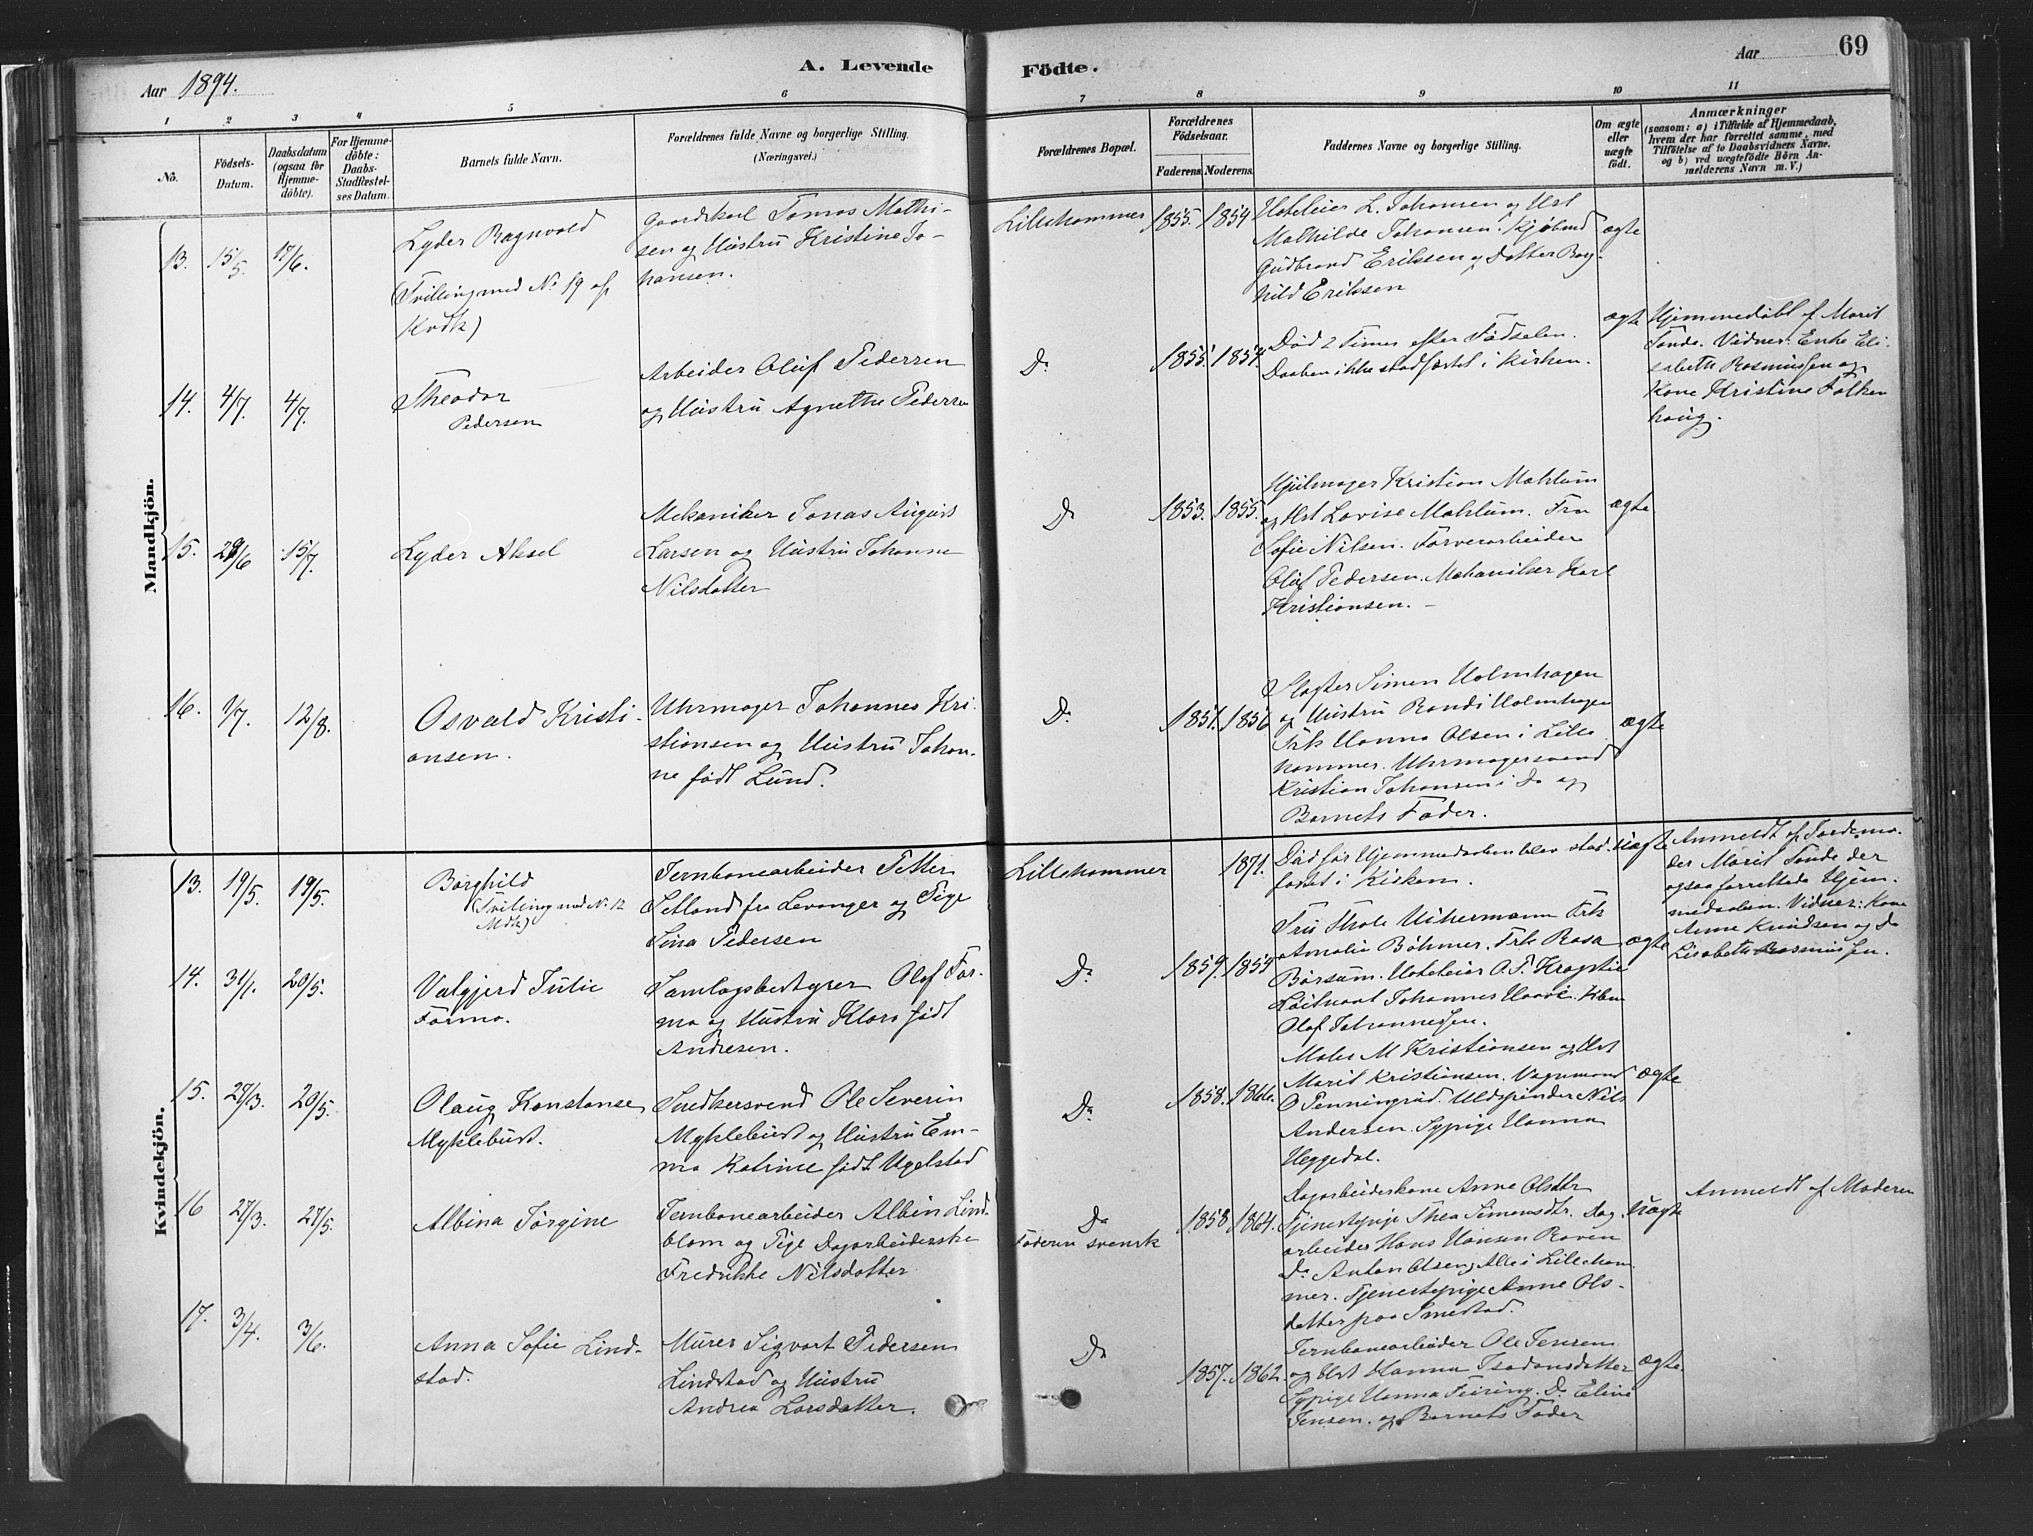 Aar 1894.
A. Levende Födte.
Aar
69
1 2 3 4 5 6 7 8 9 10 11
No.
Födsels-Datum.
Daabsdatum (ogsaa for Hjemme-döbte).
For Hjemme-döbte: Daabs-Stadfæstel-ses Datum.
Barnets fulde Navn.
Forældrenes fulde Navne og borgerlige Stilling. (Næringsvei.)
Forældrenes Bopæl.
Forældrenes Födselsaar.
Faderens
Moderens
Faddernes Navne og borgerlige Stilling.
Om ægte eller uægte födt.
Anmærkninger
(saasom: a) i Tilfælde af Hjemmedaab, hvem der har forrettet samme, med Tilföielse af to Daabsvidners Navne. og b) ved uægtefödte Börn An-melderens Navn m. V.)
Mandkjön.
13. 15/5. 17/6.
Lyder Ragnvald
(Tvilling med No 19 af
Kvdk)
Gaardskarl Tomas Mathi-
sen og Hustru Kristine Jo-
hansen.
Lillehammer 1855. 1854
Hoteleier L. Johansen og Hst
Mathilde Johansen. Kjøbmd
Gudbrand Eriksen og Datter Rag-
hild Eriksen
ægte
14. 4/7. 4/7.
Theodor
Pedersen
Arbeider Oluf Pedersen
og Hustru Agnethe Pedersen
Do 1855. 1857.
Død 2 Timer efter Fødselen.
Daaben ikke stadfæstet i Kirken.
ægte
Hjemmedøbt af Marit
Tande. Vidner: Enke Eli-
sabeth Rasmussen og
Kone Kristine Falken
haug.
15. 29/6 15/7.
Lyder Aksel
Mekaniker Jonas August
Larsen og Hustru Johanne
Nilsdatter
Do 1853. 1855.
Hjulmager Kristian Mahlum
og Hst Lovise Mahlum. Fru
Sofie Nilsen. Farverarbeider
Oluf Pedersen. Mekaniker Karl
Kristiansen. –
ægte
16. 1/7. 12/8.
Osvald Kristi-
ansen.
Uhrmager Johannes Kri-
stiansen og Hustru Johan-
ne født Lund.
Do 1851. 1856
Slagter Simen Holmhagen
og Hustru Randi Holmhagen
Frk Hanna Olsen i Lille
hammer. Uhrmagersvend
Kristian Johansen i Do og
Barnets Fader.
ægte
Kvindekjön.
13. 19/5. 19/5.
Borghild
(Tvilling med No 12
Mdk)
Jernbanearbeider Petter
Setland fra Levanger og Pige
Sina Pedersen
Lillehammer 1871.
Død før Hjemmedaaben blev stad-
fæstet i Kirken.
uægte
Anmeldt af Jordemo-
der Marit Tande der
ogsaa forrettede Hjem-
medaaben. Vidner: Kone
Anne Knudsen og Do
Lisabeth Rasmussen.
14. 31/1. 20/5.
Valgjerd Julie
Formo.
Samlagsbestyrer Olaf For-
mo og Hustru Klara født
Andresen.
Do 1859. 1859
Fru Thale Uchermann Frk
Amalie Böhmer. Frk Rosa
Børsum. Hoteleier O. T. Kragstie
Løitnant Johannes Haave. Kbm
Olaf Johannessen.
ægte
15. 27/3. 20/5.
Olaug Konstanse
Myklebust.
Snedkersvend Ole Severin
Myklebust og Hustru Em-
ma Katrine født Ugelstad
Do 1858. 1866.
Maler M Kristiansen og Hst
Marit Kristiansen. Vognmand
O Penningrud. Uldspinder Nils
Andersen. Sypige Hanna
Heggedal.
ægte
16 27/3. 27/5.
Albina Jørgine
Jernbanearbeider Albin Lind-
blom og Pige Dagarbeiderske
Fredrikke Nilsdatter
Do
Faderen svensk
1858 1864.
Dagarbeiderskone Anne Olsdtr
Tjenestepige Thea Simensdtr. Dag-
arbeider Hans Hansen Raven
Do Anton Olsen, Alle i Lilleham-
mer. Tjenestepige Anne Ols-
datter paa Smestad.
Uægte
Anmeldt af Moderen
17. 3/4. 3/6.
Anna Sofie Lind-
stad.
Murer Sigvart Pedersen
Lindstad og Hustru
Andrea Larsdatter.
Do
1857. 1862.
Jernbanearbeider Ole Jensen
og Hst Hanna Tsadansdatter
Sypige Hanna Feiring. Do Eline
Jensen. og Barnets Fader
ægte.